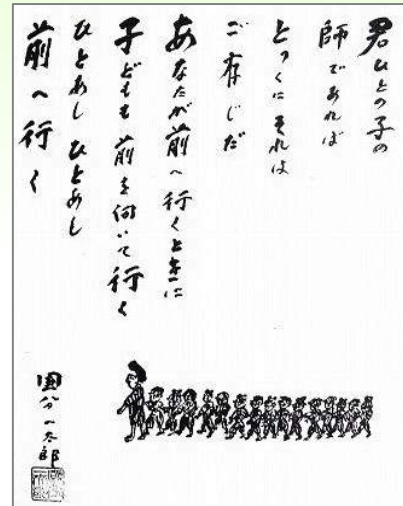 君ひとの子の
師であれば
とっくにそれは
ご存じだ
あなたが前へ行くときに
子どもも前を向いて行く
ひとあしひとあし
前へ行く
国分一太郎